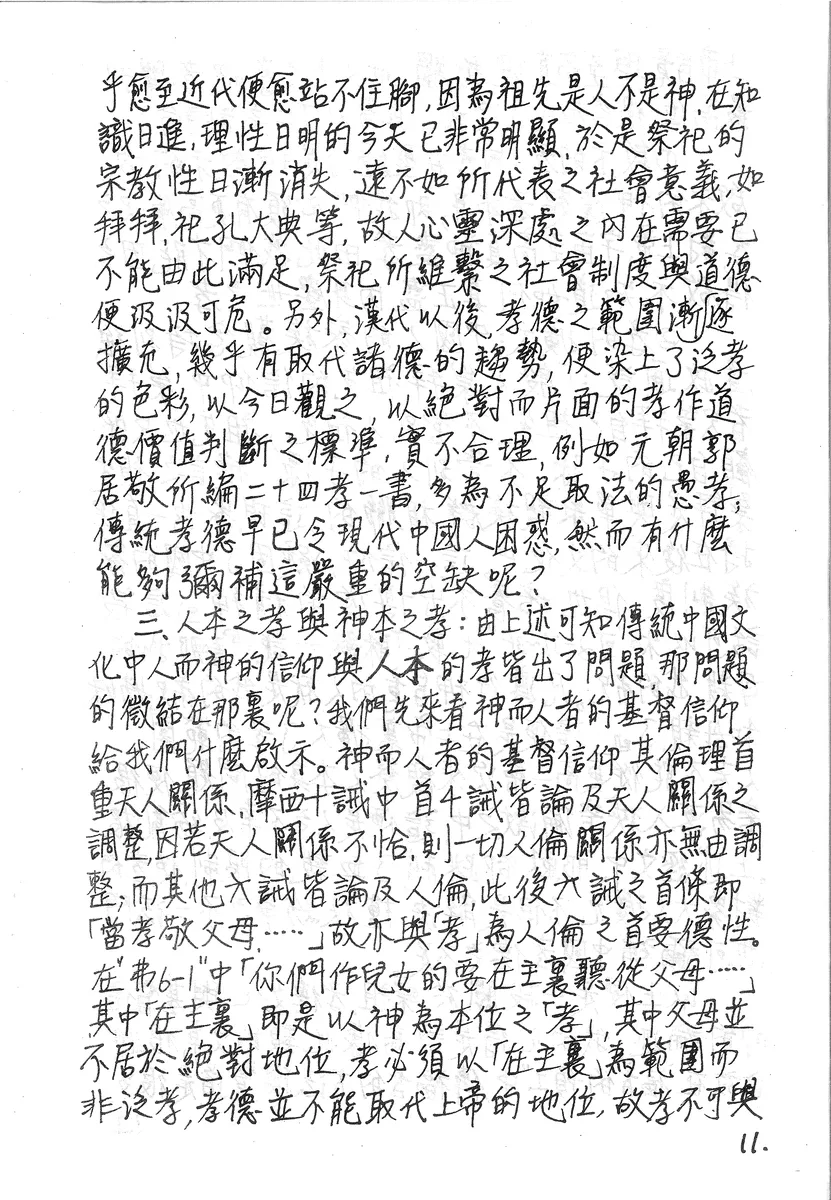 乎愈至近代便愈站不住腳,因為祖先是人不是神,在知
識日進,理性日明的今天已非常明顯,於是祭祀的
宗教性日漸消失,遠不如所代表之社會意義,如
拜拜,祀孔大典等,故人心靈深處之內在需要已
不能由此滿足,祭祀所維繫之社會制度與道德
便汲汲可危。另外,漢代以後,孝德之範圍漸逐
擴充,幾乎有取代諸德的趨勢,便染上了泛孝
的色彩,以今日觀之,以絕對而片面的孝作道
德價值判斷之標準,實不合理,例如元朝郭
居敬所編二十四孝一書,多為不足取法的愚孝;
傳統孝德早已令現代中國人困惑,然而有什麼
能夠彌補這嚴重的空缺呢?
三、人本之孝與神本之孝:由上述可知傳統中國文
化中人而神的信仰與人本的孝皆出了問題,那問題
的徵結在那裏呢?我們先來看神而人者的基督信仰
給我們什麼啟示。神而人者的基督信仰其倫理首
重天人關係,摩西十誡中首4誡皆論及天人關係之
調整,因若天人關係不恰,則一切人倫關係亦無由調
整;而其他六誡皆論及人倫,此後六誡之首條即
「當孝敬父母……」故亦與「孝」為人倫之首要德性。
在"弗6-1"中「你們作兒女的要在主裏聽從父母……」
其中「在主裏」即是以神為本位之「孝」,其中父母並
不居於絕對地位,孝必須以「在主裏」為範圍而
非泛孝,孝德並不能取代上帝的地位,故孝不可與
11.